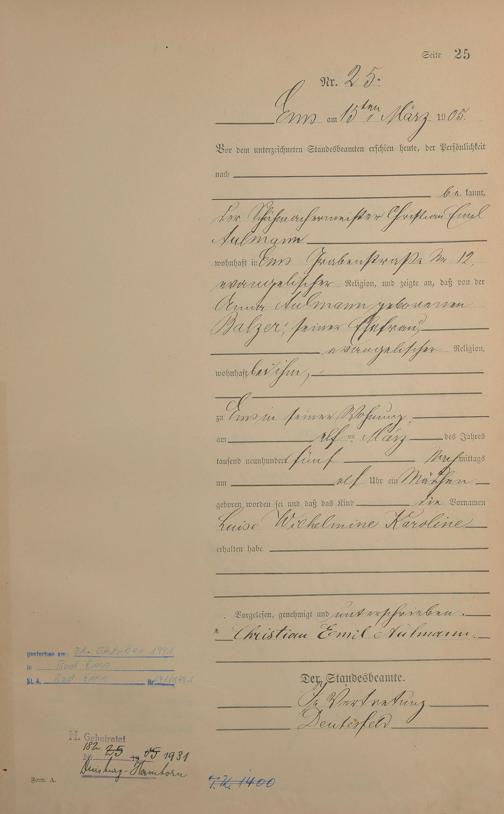 Seite 25
Nr. 25.
Ems am 15ten März 1905.
Vor dem unterzeichneten Standesbeamten erschien heute, der Persönlichkeit
nach
be kannt,
der Schuhmachermeister Christian Emil
Aulmann
wohnhaft in Ems Grabenstraße Nr 12,
evangelischer Religion, und zeigte an, daß von der
Anna Aulmann geborenen
Balzer, seiner Ehefrau,
evangelischer Religion,
wohnhaft bei ihm,
zu Ems in seiner Wohnung,
am elften März des Jahres
tausend neunhundert fünf Nachmittags
um elf Uhr ein Mädchen
geboren worden sei und daß das Kind die Vornamen
Luise Wilhelmine Karoline
erhalten habe
Vorgelesen, genehmigt und unterschrieben.
Christian Emil Aulmann.
Der Standesbeamte.
In Vertretung
gestorben am: 21. Oktober
in Bad Ems
St. A. Bad Ems Nr.
H. Geheiratet
1931
Duisburg-Hamborn
Form. A.
1400